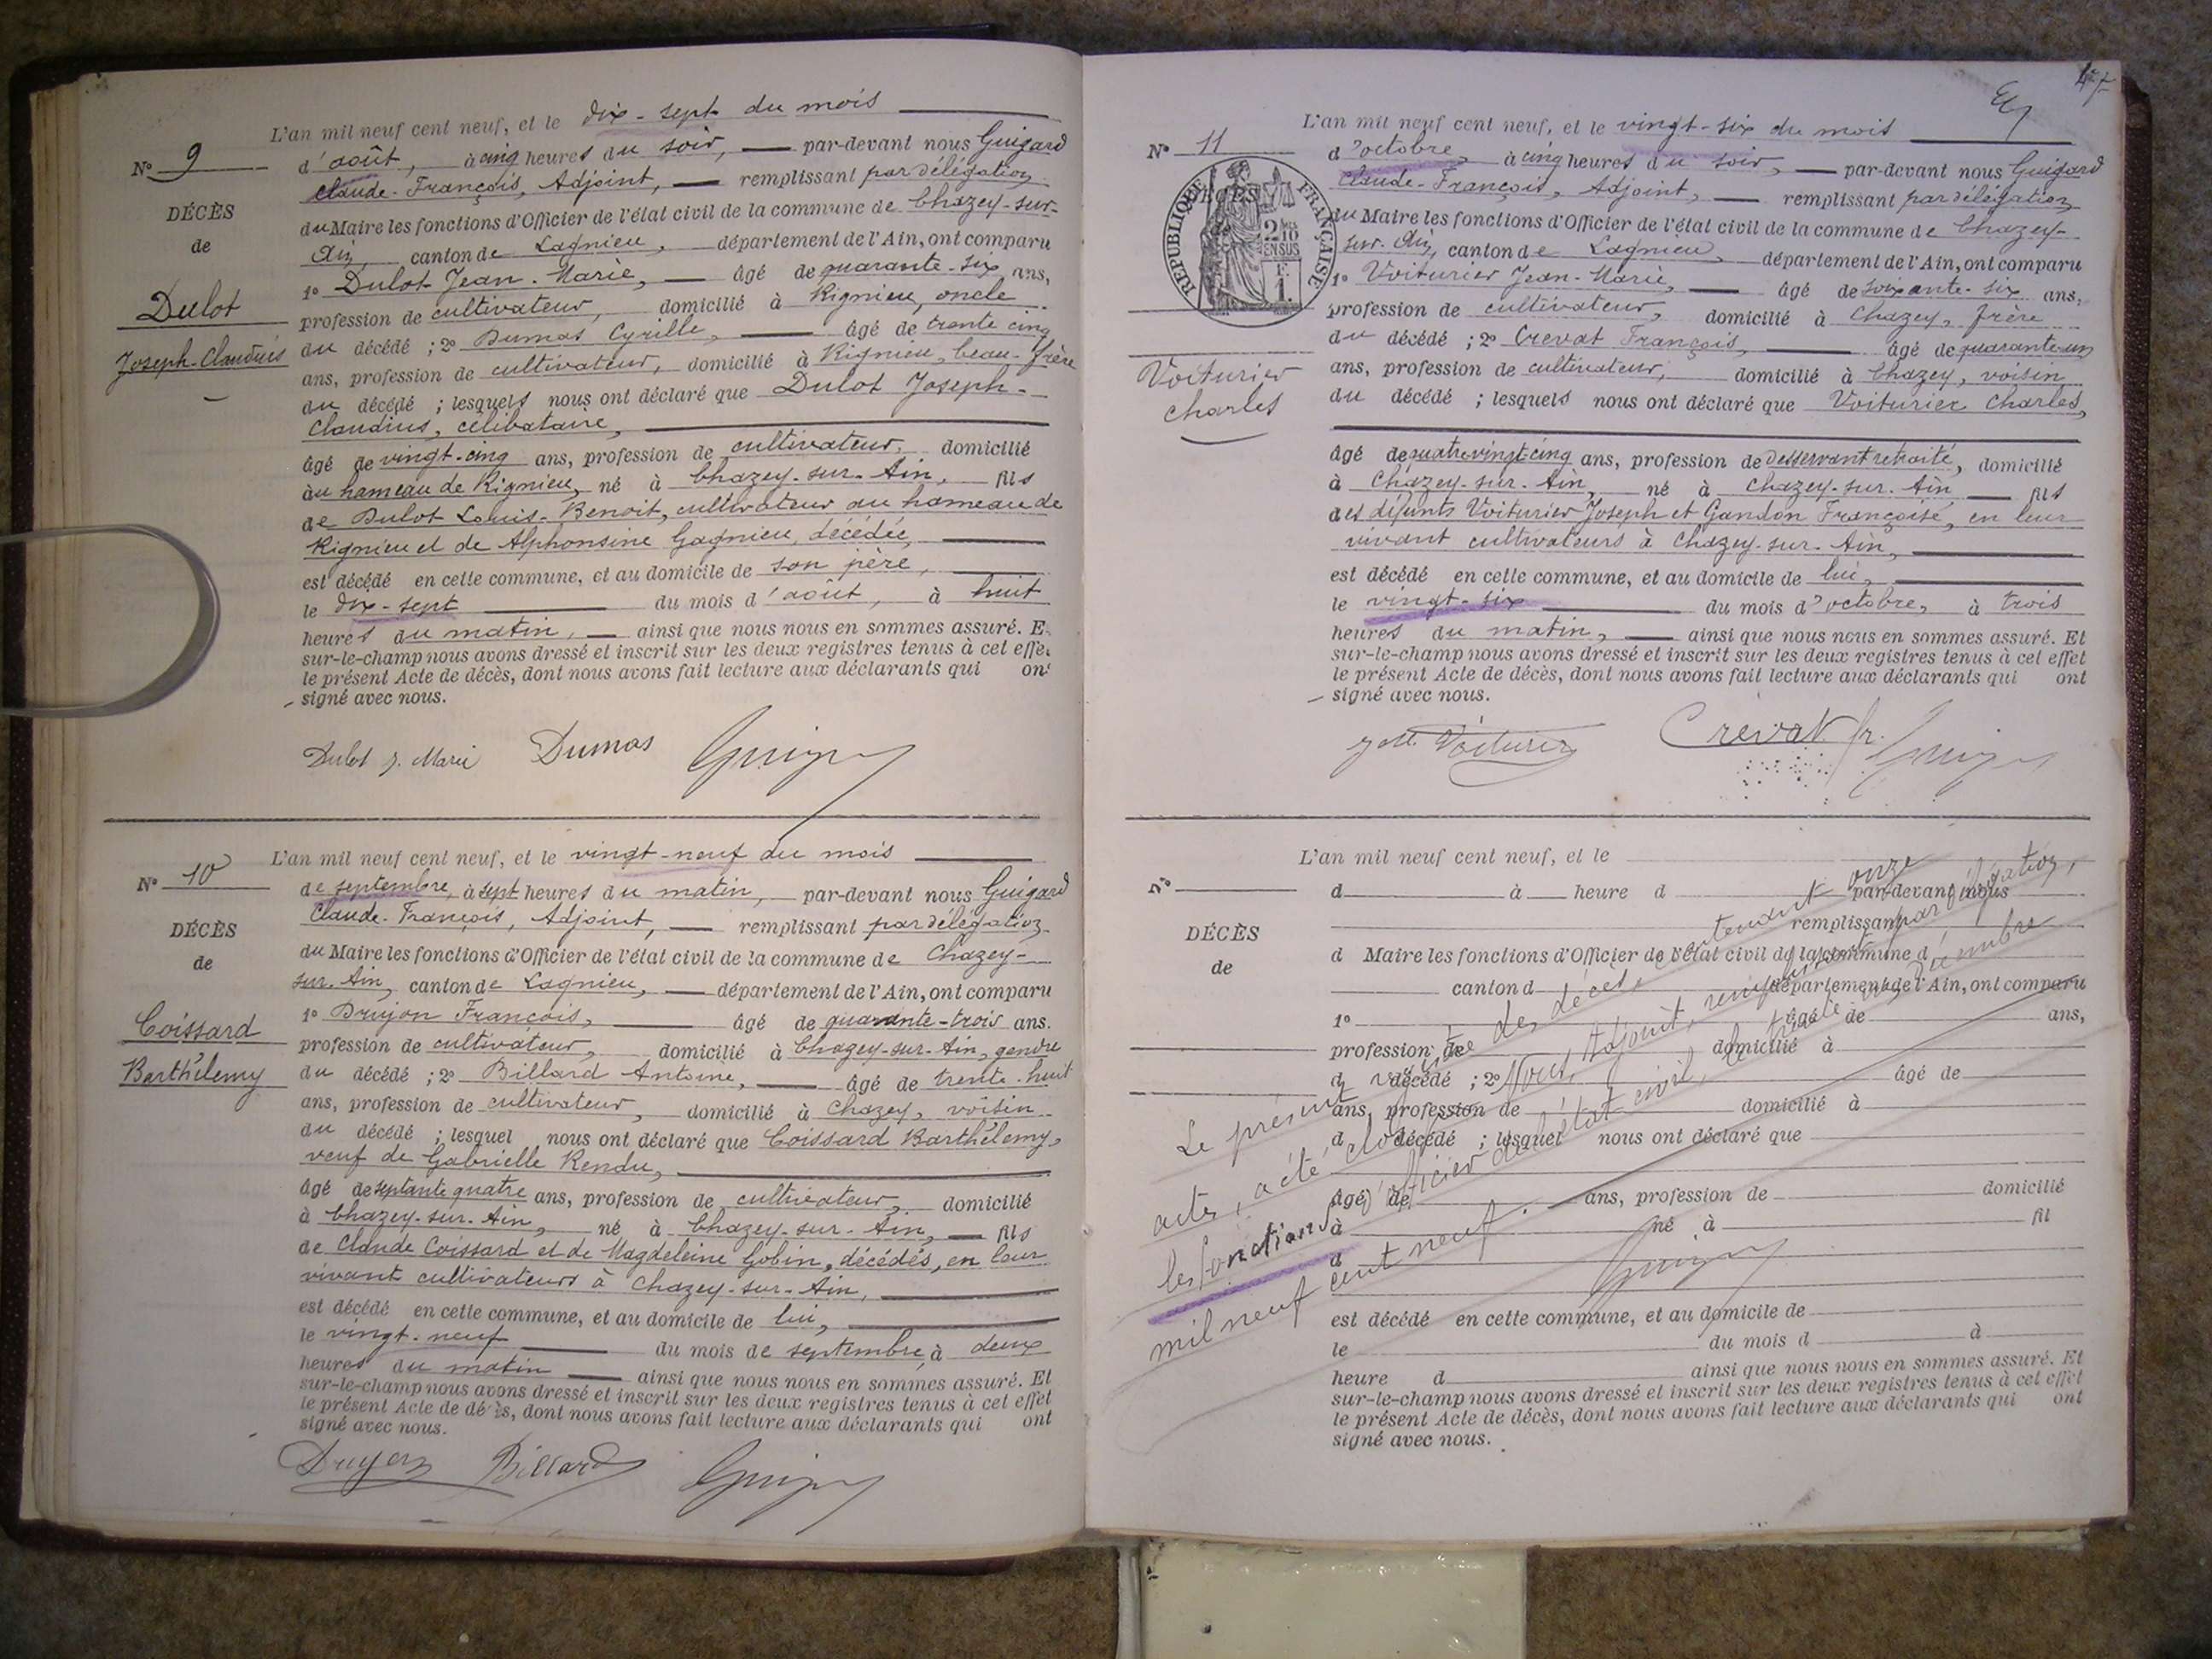 L'an mil neuf cent neuf, et le dix-sept du mois
N° 9
d'août, à cinq heures du soir, par-devant nous Guigard
Claude-François, Adjoint, remplissant par délégation
DÉCÈS
du Maire les fonctions d'Officier de l'état civil de la commune de Chazey-sur-
de
Ain, canton de Lagnieu, département de l'Ain, ont comparu
1° Dulot Jean-Marie, âgé de quarante-six ans,
Dulot
profession de cultivateur, domicilié à Rignieu, oncle
Joseph-Claudius
du décédé ; 2° Dumas Cyrille, âgé de trente cinq
ans, profession de cultivateur, domicilié à Rignieu, beau-frère
du décédé ; lesquels nous ont déclaré que Dulot Joseph-
Claudius, célibataire,
âgé de vingt-cinq ans, profession de cultivateur, domicilié
au hameau de Rignieu, né à Chazey-sur-Ain, fils
de Dulot Louis-Benoit, cultivateur au hameau de
Rignieu et de Alphonsine Gagnieu, décédée,
est décédé en cette commune, et au domicile de son père,
le dix-sept du mois d'août, à huit
heures du matin, ainsi que nous nous en sommes assuré. E
sur-le-champ nous avons dressé et inscrit sur les deux registres tenus à cet effe
le présent Acte de décès, dont nous avons fait lecture aux déclarants qui on
signé avec nous.
Dulot J. Marie Dumas
L'an mil neuf cent neuf, et le vingt-neuf du mois
N° 10
de septembre, à sept heures du matin, par-devant nous Guigard
Claude-François, Adjoint, remplissant par délégation
DÉCÈS
du Maire les fonctions d'Officier de l'état civil de la commune de Chazey-
de
sur-Ain, canton de Lagnieu, département de l'Ain, ont comparu
1° Drujon François, âgé de quarante-trois ans.
Coissard
profession de cultivateur, domicilié à Chazey-sur-Ain, gendre
Barthélemy
du décédé ; 2° Billard Antoine, âgé de trente-huit
ans, profession de cultivateur, domicilié à Chazey, voisin
du décédé ; lesquel nous ont déclaré que Coissard Barthélemy,
veuf de Gabrielle Rendu,
âgé de septante quatre ans, profession de cultivateur, domicilié
à Chazey-sur-Ain, né à Chazey-sur-Ain, fils
de Claude Coissard et de Magdeleine Gobin, décédés, en leur
vivant cultivateurs à Chazey-sur-Ain,
est décédé en cette commune, et au domicile de lui,
le vingt-neuf du mois de septembre, à deux
heures du matin ainsi que nous nous en sommes assuré. Et
sur-le-champ nous avons dressé et inscrit sur les deux registres tenus à cet effet
le présent Acte de décès, dont nous avons fait lecture aux déclarants qui ont
signé avec nous.
Billard
L'an mil neuf cent neuf, et le vingt-six du mois
N° 11
d'octobre, à cinq heures du soir, par-devant nous Guigard
Claude-François, Adjoint, remplissant par délégation
RÉPUBLIQUE FRANÇAISE
du Maire les fonctions d'Officier de l'état civil de la commune de Chazey-
sur-Ain, canton de Lagnieu, département de l'Ain, ont comparu
1° Voiturier Jean-Marie, âgé de soixante-six ans,
profession de cultivateur, domicilié à Chazey, frère
du décédé ; 2° Crevat François, âgé de quarante-un
Voiturier
ans, profession de cultivateur, domicilié à Chazey, voisin
Charles
du décédé ; lesquels nous ont déclaré que Voiturier Charles,
âgé de quatre vingt cinq ans, profession de desservant retraité, domicilié
à Chazey-sur-Ain, né à Chazey-sur-Ain fils
des défunts Voiturier Joseph et Gandon Françoise, en leur
vivant cultivateurs à Chazey-sur-Ain,
est décédé en cette commune, et au domicile de lui,
le vingt-six du mois d'octobre, à trois
heures du matin, ainsi que nous nous en sommes assuré. Et
sur-le-champ nous avons dressé et inscrit sur les deux registres tenus à cet effet
le présent Acte de décès, dont nous avons fait lecture aux déclarants qui ont
signé avec nous.
Voiturier Crevat fr.
L'an mil neuf cent neuf, et le
N°
d à heure d par-devant nous
remplissant
DÉCÈS
d Maire les fonctions d'Officier de l'état civil de la commune d
de
canton d département de l'Ain, ont comparu
1° âgé de ans,
profession de domicilié à
d décédé ; 2° âgé de
ans, profession de domicilié à
d décédé ; lesquel nous ont déclaré que
âgé de ans, profession de domicilié
à né à fil
d
est décédé en cette commune, et au domicile de
le du mois d à
heure d ainsi que nous nous en sommes assuré. Et
sur-le-champ nous avons dressé et inscrit sur les deux registres tenus à cet effet
le présent Acte de décès, dont nous avons fait lecture aux déclarants qui ont
signé avec nous.
Le présent registre des décès, contenant onze
actes, a été clos par Nous, Adjoint, remplissant par délégation,
les fonctions d'officier de l'état civil, le trente un Décembre
mil neuf cent neuf.